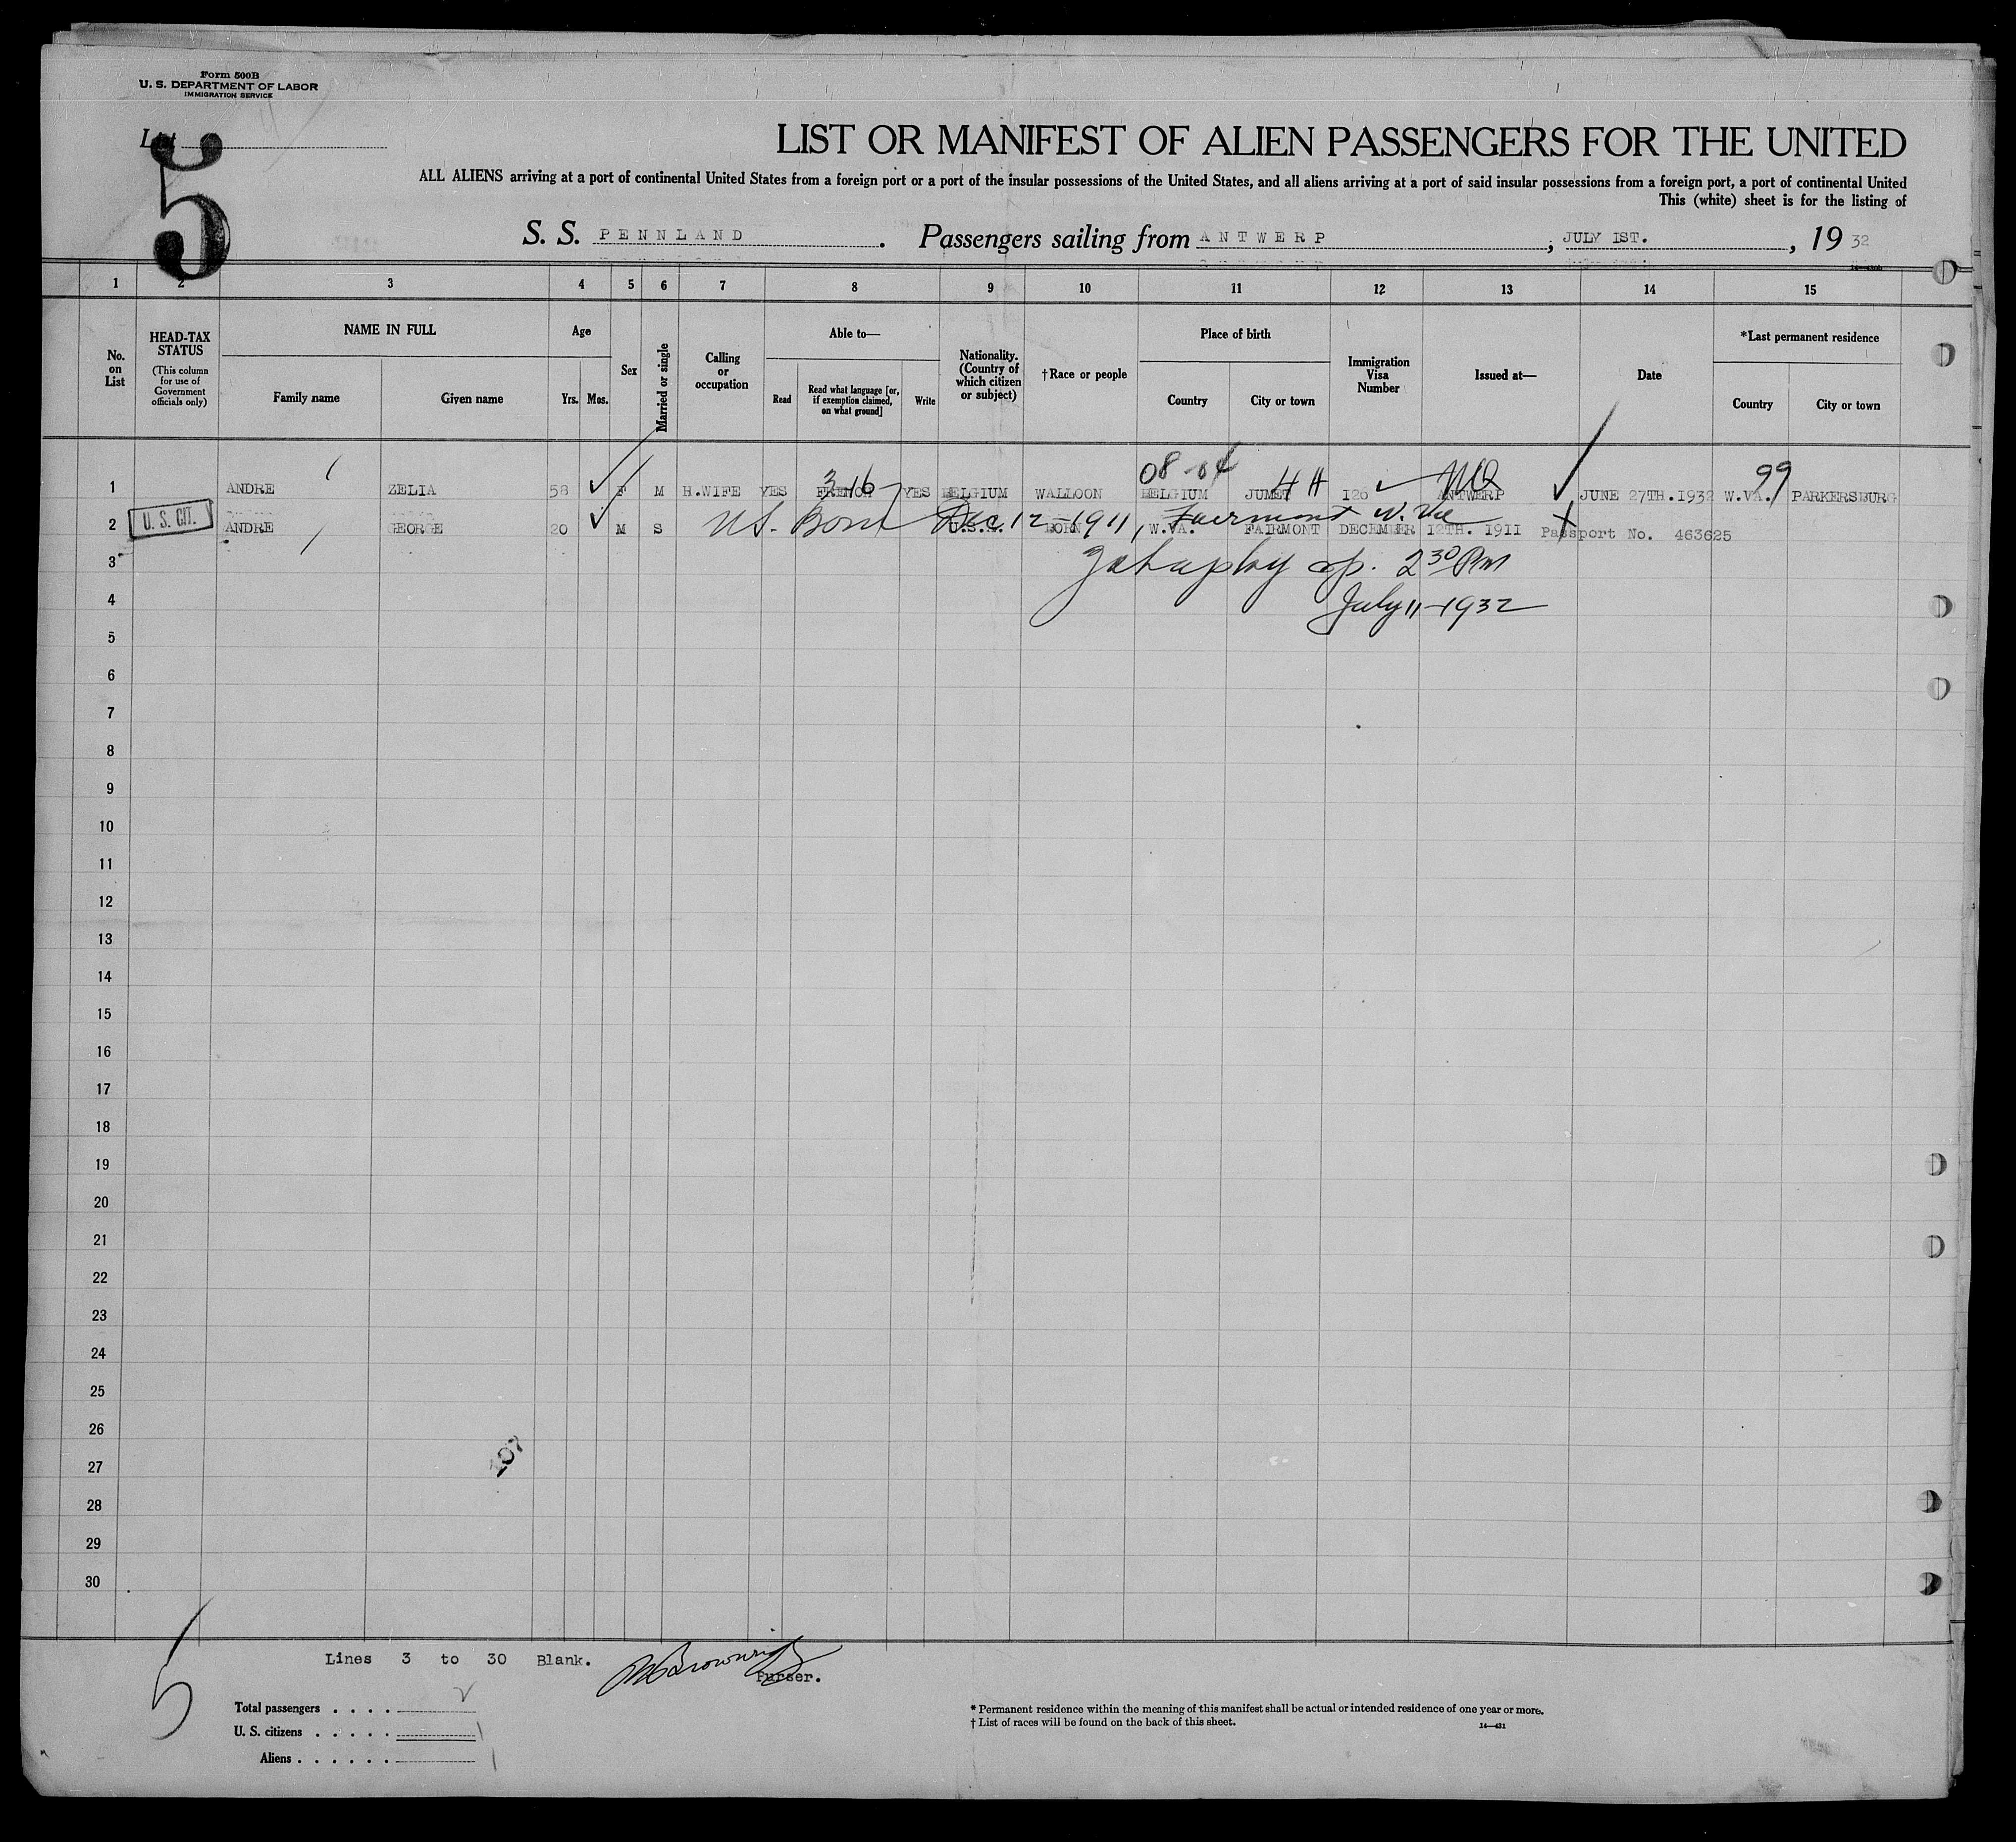 Form 500B
U. S. DEPARTMENT OF LABOR
IMMIGRATION SERVICE
List
5
LIST OR MANIFEST OF ALIEN PASSENGERS FOR THE UNITED
ALL ALIENS arriving at a port of continental United States from a foreign port or a port of the insular possessions of the United States, and all aliens arriving at a port of said insular possessions from a foreign port, a port of continental United
This (white) sheet is for the listing of
S. S. PENNLAND. Passengers sailing from ANTWERP; JULY 1ST., 1932
1 2 3 4 5 6 7 8 9 10 11 12 13 14 15
No. on List
HEAD-TAX STATUS
(This column for use of Government officials only)
NAME IN FULL
Family name
Given name
Age
Yrs. Mos.
Sex
Married or single
Calling or occupation
Able to—
Read
Read what language [or, if exemption claimed, on what ground]
Write
Nationality. (Country of which citizen or subject)
†Race or people
Place of birth
Country
City or town
Immigration Visa Number
Issued at—
Date
*Last permanent residence
Country
City or town
08-04
3-16 4H 99
1 ANDRE ZELIA 58 F M H.WIFE YES FRENCH YES BELGIUM WALLOON BELGIUM JUMET 126 ANTWERP JUNE 27TH.1932 W.VA. PARKERSBURG
U.S. Born Dec 12-1911, Fairmont W. Va
2 U. S. CIT. ANDRE GEORGE 20 M S U.S.C. BORN W.VA. FAIRMONT DECEMBER 12TH. 1911 Passport No. 463625
3
2 30 PM
4
July 11-1932
5
6
7
8
9
10
11
12
13
14
15
16
17
18
19
20
21
22
23
24
25
26
27
28
29
30
Lines 3 to 30 Blank.
Purser.
5
Total passengers . . . . 2
U. S. citizens . . . . . 1
Aliens . . . . . . 1
* Permanent residence within the meaning of this manifest shall be actual or intended residence of one year or more.
† List of races will be found on the back of this sheet.
14—431